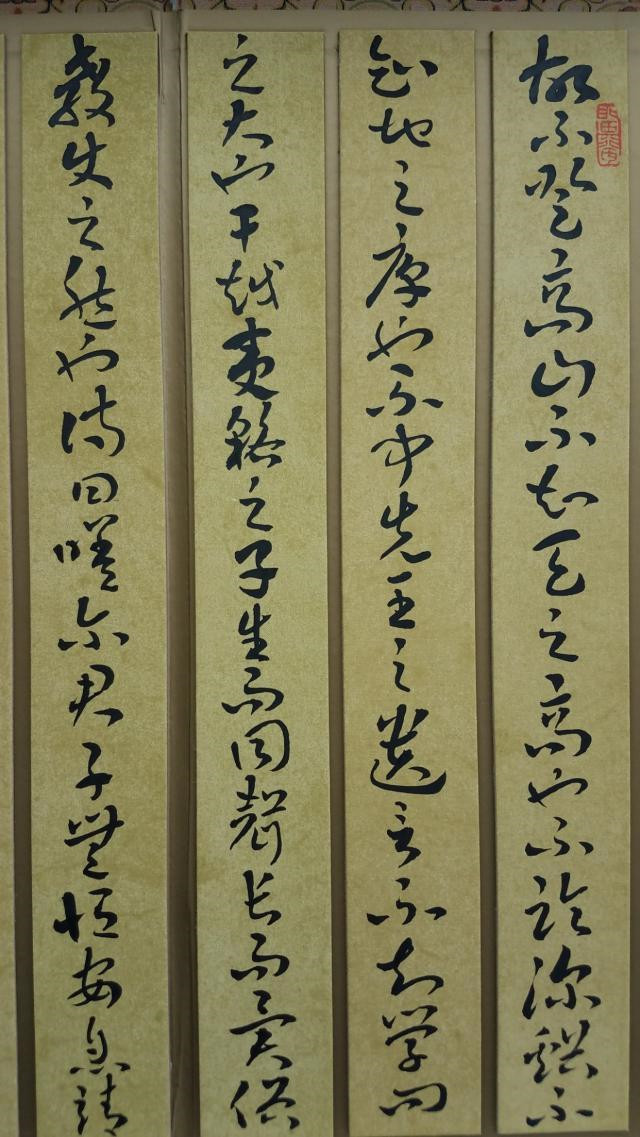 故不登高山不知天之高也不臨深谿不
知地之厚也不聞先王之遺言不知學問
之大也干越夷貉之子生而同聲長而異俗
教使之然也詩曰嗟爾君子無恆安息靖